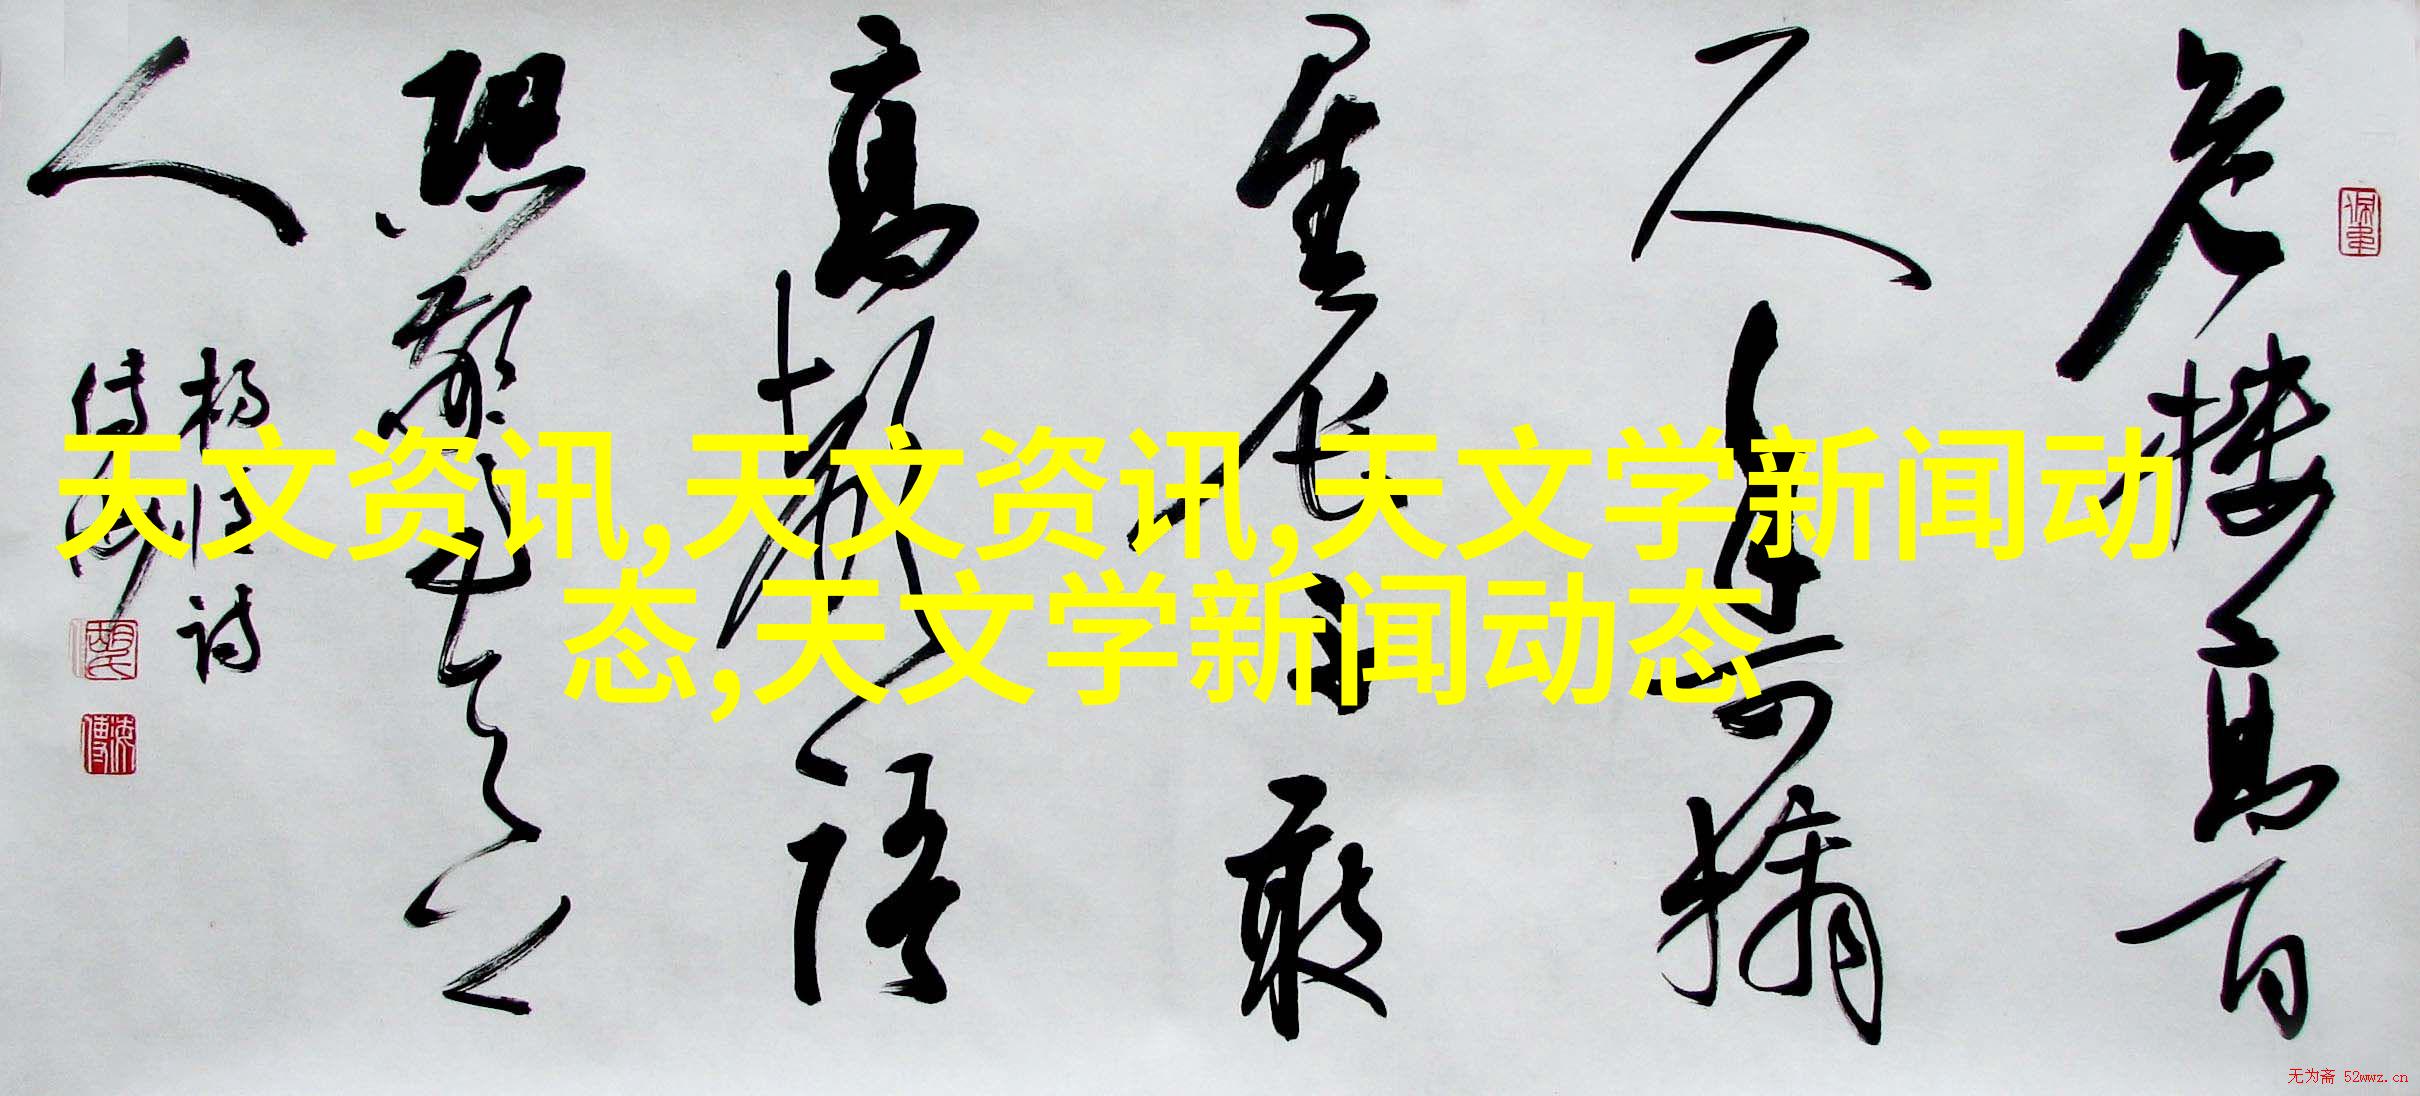 危楼高百
尺手可摘
星辰不敢
高聲语
恐驚天上
人
天文资讯,天文资讯,天文学新闻动
态,天文学新闻动态
无为斋 52wwz.cn